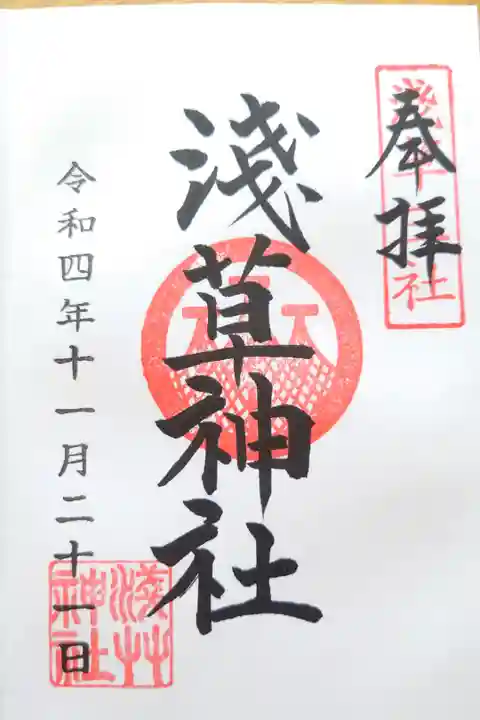 奉拝
淺草神社
淺草神社
令和四年十一月二十一日
淺艸神社